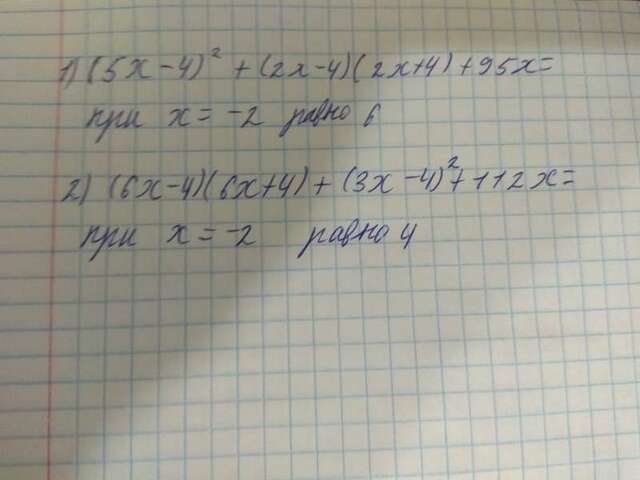 1) (5x-4)² + (2x-4)(2x+4) + 95x=
при x = -2 равно 6
2) (6x-4)(6x+4) + (3x-4)² + 112x=
при x = -2 равно 4